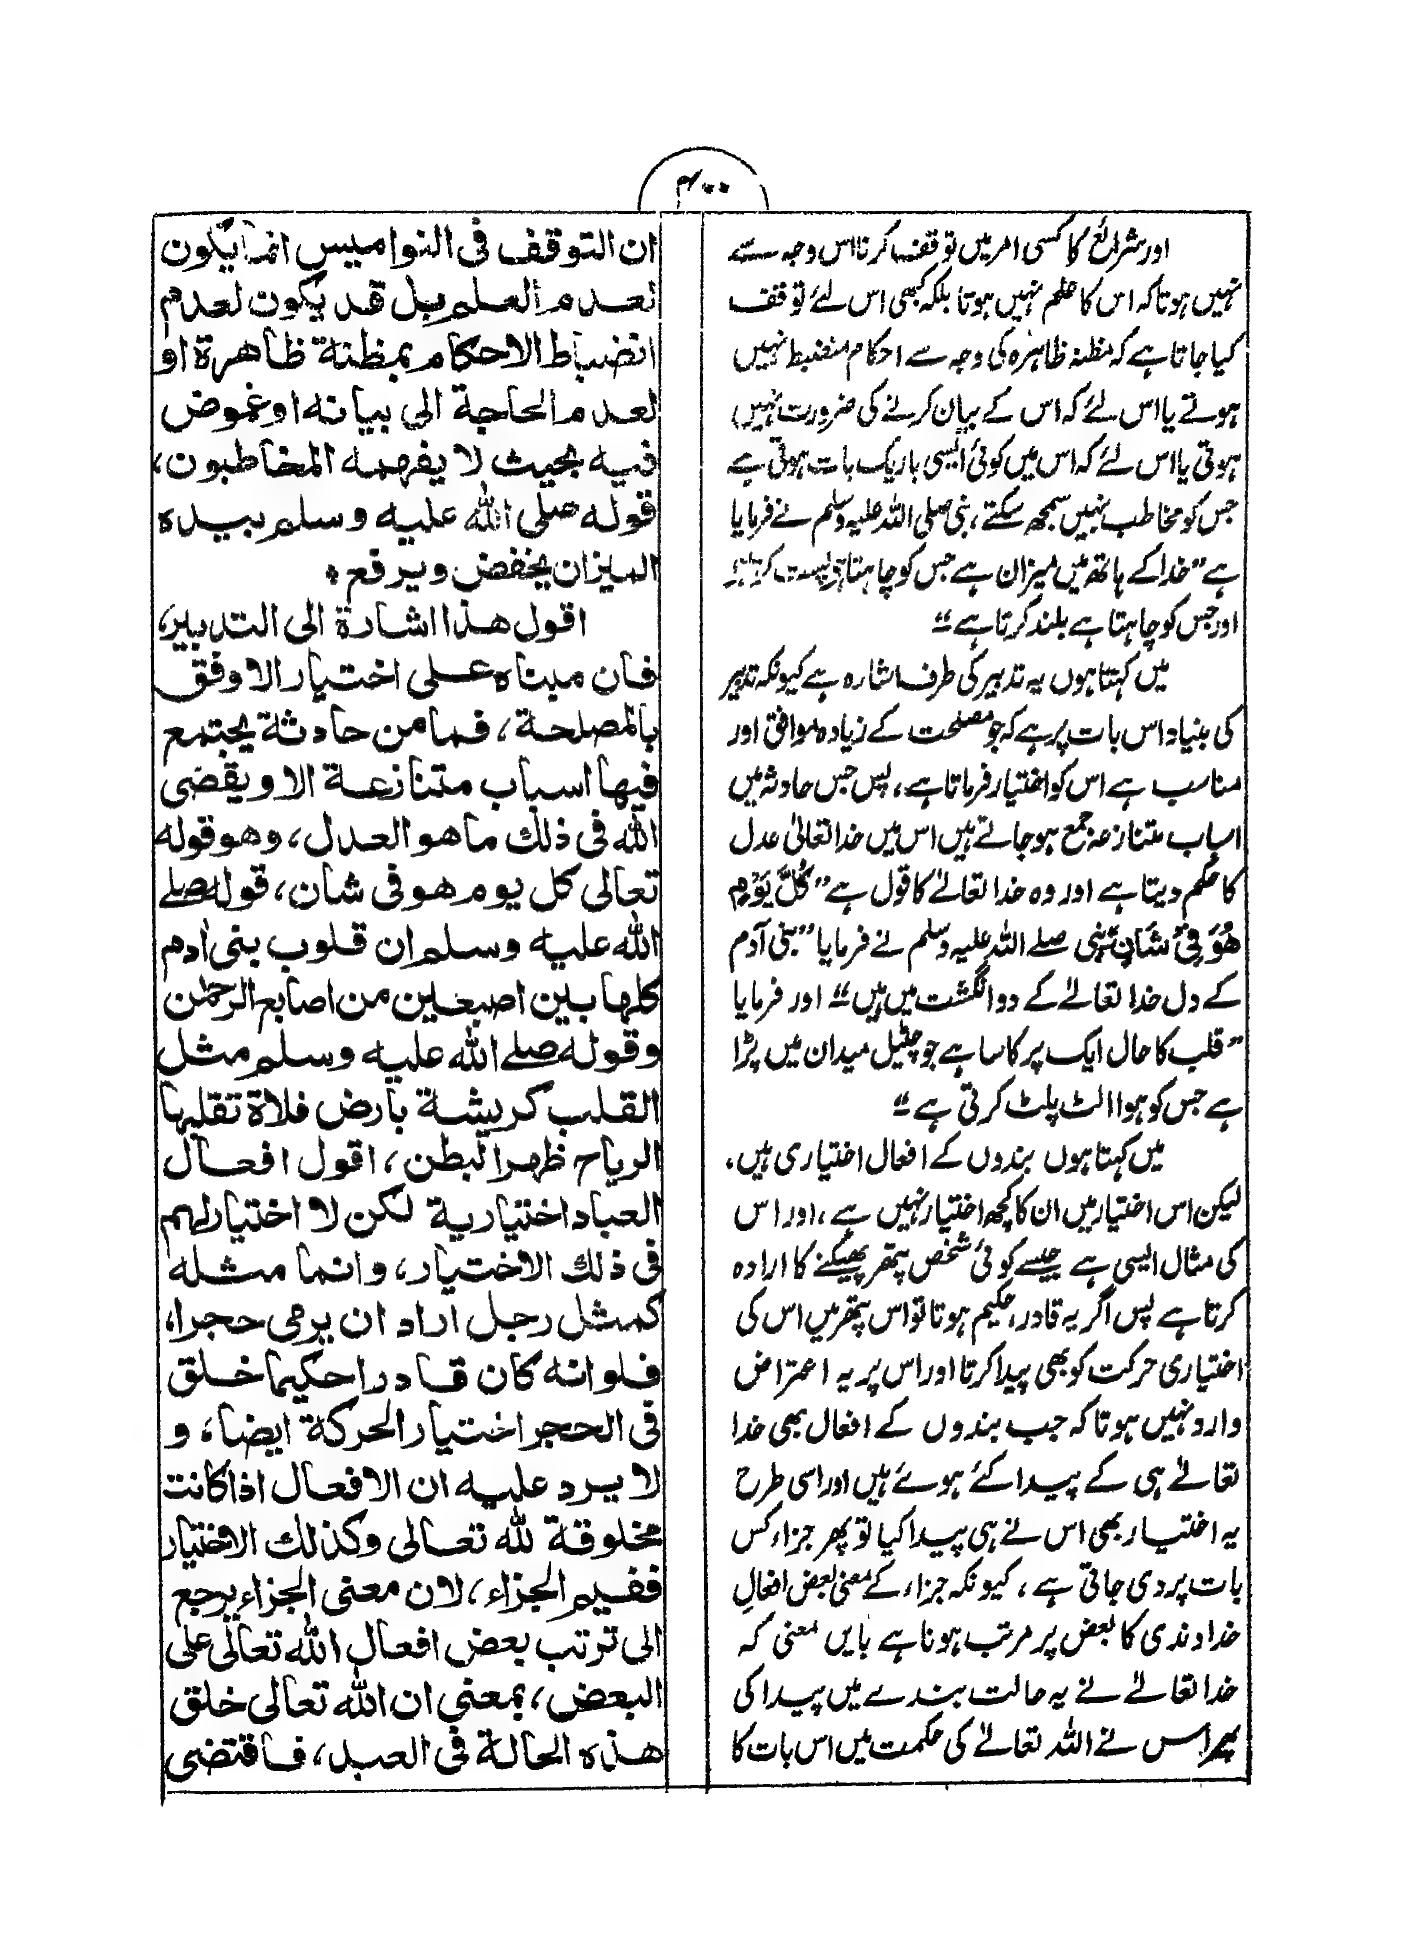 ۴۰۰
اور شرائع کا کسی امر میں توقف کرنا اس وجہ سے
نہیں ہوتا کہ اس کا علم نہیں ہوتا بلکہ کبھی اس لئے توقف
کیا جاتا ہے کہ مظنہ ظاہرہ کی وجہ سے احکام منضبط نہیں
ہوتے یا اس لئے کہ اس کے بیان کرنے کی ضرورت نہیں
ہوتی یا اس لئے کہ اس میں کوئی ایسی باریک بات ہوتی ہے
جس کو مخاطب نہیں سمجھ سکتے، نبی صلی اللہ علیہ وسلم نے فرمایا
ہے "خدا کے ہاتھ میں میزان ہے جس کو چاہتا ہے پست کرتا ہے
اور جس کو چاہتا ہے بلند کرتا ہے"
میں کہتا ہوں یہ تدبیر کی طرف اشارہ ہے کیونکہ تدبیر
کی بنیاد اس بات پر ہے کہ جو مصلحت کے زیادہ موافق اور
مناسب ہے اس کو اختیار فرماتا ہے، پس جس حادثہ میں
اسباب متنازعہ جمع ہو جاتے ہیں اس میں خدا تعالیٰ عدل
کا حکم دیتا ہے اور وہ خدا تعالےٰ کا قول ہے "کُلَّ یَوْمٍ
ھُوَ فِیْ شَاْنٍ" نبی صلے اللہ علیہ وسلم نے فرمایا "بنی آدم
کے دل خدا تعالےٰ کے دو انگشت میں ہیں" اور فرمایا
"قلب کا حال ایک پر کا سا ہے جو چٹیل میدان میں پڑا
ہے جس کو ہوا الٹ پلٹ کرتی ہے"
میں کہتا ہوں بندوں کے افعال اختیاری ہیں،
لیکن اس اختیار میں ان کا کچھ اختیار نہیں ہے، اور اس
کی مثال ایسی ہے جیسے کوئی شخص پتھر پھینکنے کا ارادہ
کرتا ہے پس اگر یہ قادر، حکیم ہوتا تو اس پتھر میں اس کی
اختیاری حرکت کو بھی پیدا کرتا اور اس پر یہ اعتراض
وارد نہیں ہوتا کہ جب بندوں کے افعال بھی خدا
تعالےٰ ہی کے پیدا کئے ہوئے ہیں اور اسی طرح
یہ اختیار بھی اس نے ہی پیدا کیا تو پھر جزاء کس
بات پر دی جاتی ہے، کیونکہ جزاء کے معنی بعض افعال
خداوندی کا بعض پر مرتب ہونا ہے بایں معنی کہ
خدا تعالےٰ نے یہ حالت بندے میں پیدا کی
پھر اس نے اللہ تعالےٰ کی حکمت میں اس بات کا
ان التوقف فی النوامیس انما یکون
لعدم العلم بل قد یکون لعدم
انضباط الاحکام بمظنة ظاهرة او
لعدم الحاجة الی بیانه او غموض
فیه بحیث لا یفهمه المخاطبون،
قوله صلی الله علیه وسلم بیده
المیزان یخفض ویرفع ۔
اقول هذا اشارة الی التدبیر،
فان مبناه علی اختیار الاوفق
بالمصلحة، فما من حادثة یجتمع
فیها اسباب متنازعة الا ویقضی
الله فی ذلك ما هو العدل، وهو قوله
تعالی کل یوم هو فی شان، قوله صلے
الله علیه وسلم ان قلوب بنی ادم
کلها بین اصبعین من اصابع الرحمٰن
وقوله صلے الله علیه وسلم مثل
القلب کریشة بارض فلاة تقلبها
الریاح ظهرا لبطن، اقول افعال
العباد اختیاریة لکن لا اختیار لهم
فی ذلك الاختیار، وانما مثله
کمثل رجل اراد ان یرمی حجرا،
فلو انه کان قادرا حکیما خلق
فی الحجر اختیار الحرکة ایضا، و
لا یرد علیه ان الافعال اذا کانت
مخلوقة لله تعالی وکذلك الاختیار
ففیم الجزاء، لان معنی الجزاء یرجع
الی ترتب بعض افعال الله تعالی علی
البعض، بمعنی ان الله تعالی خلق
هذه الحالة فی العبد، فاقتضی